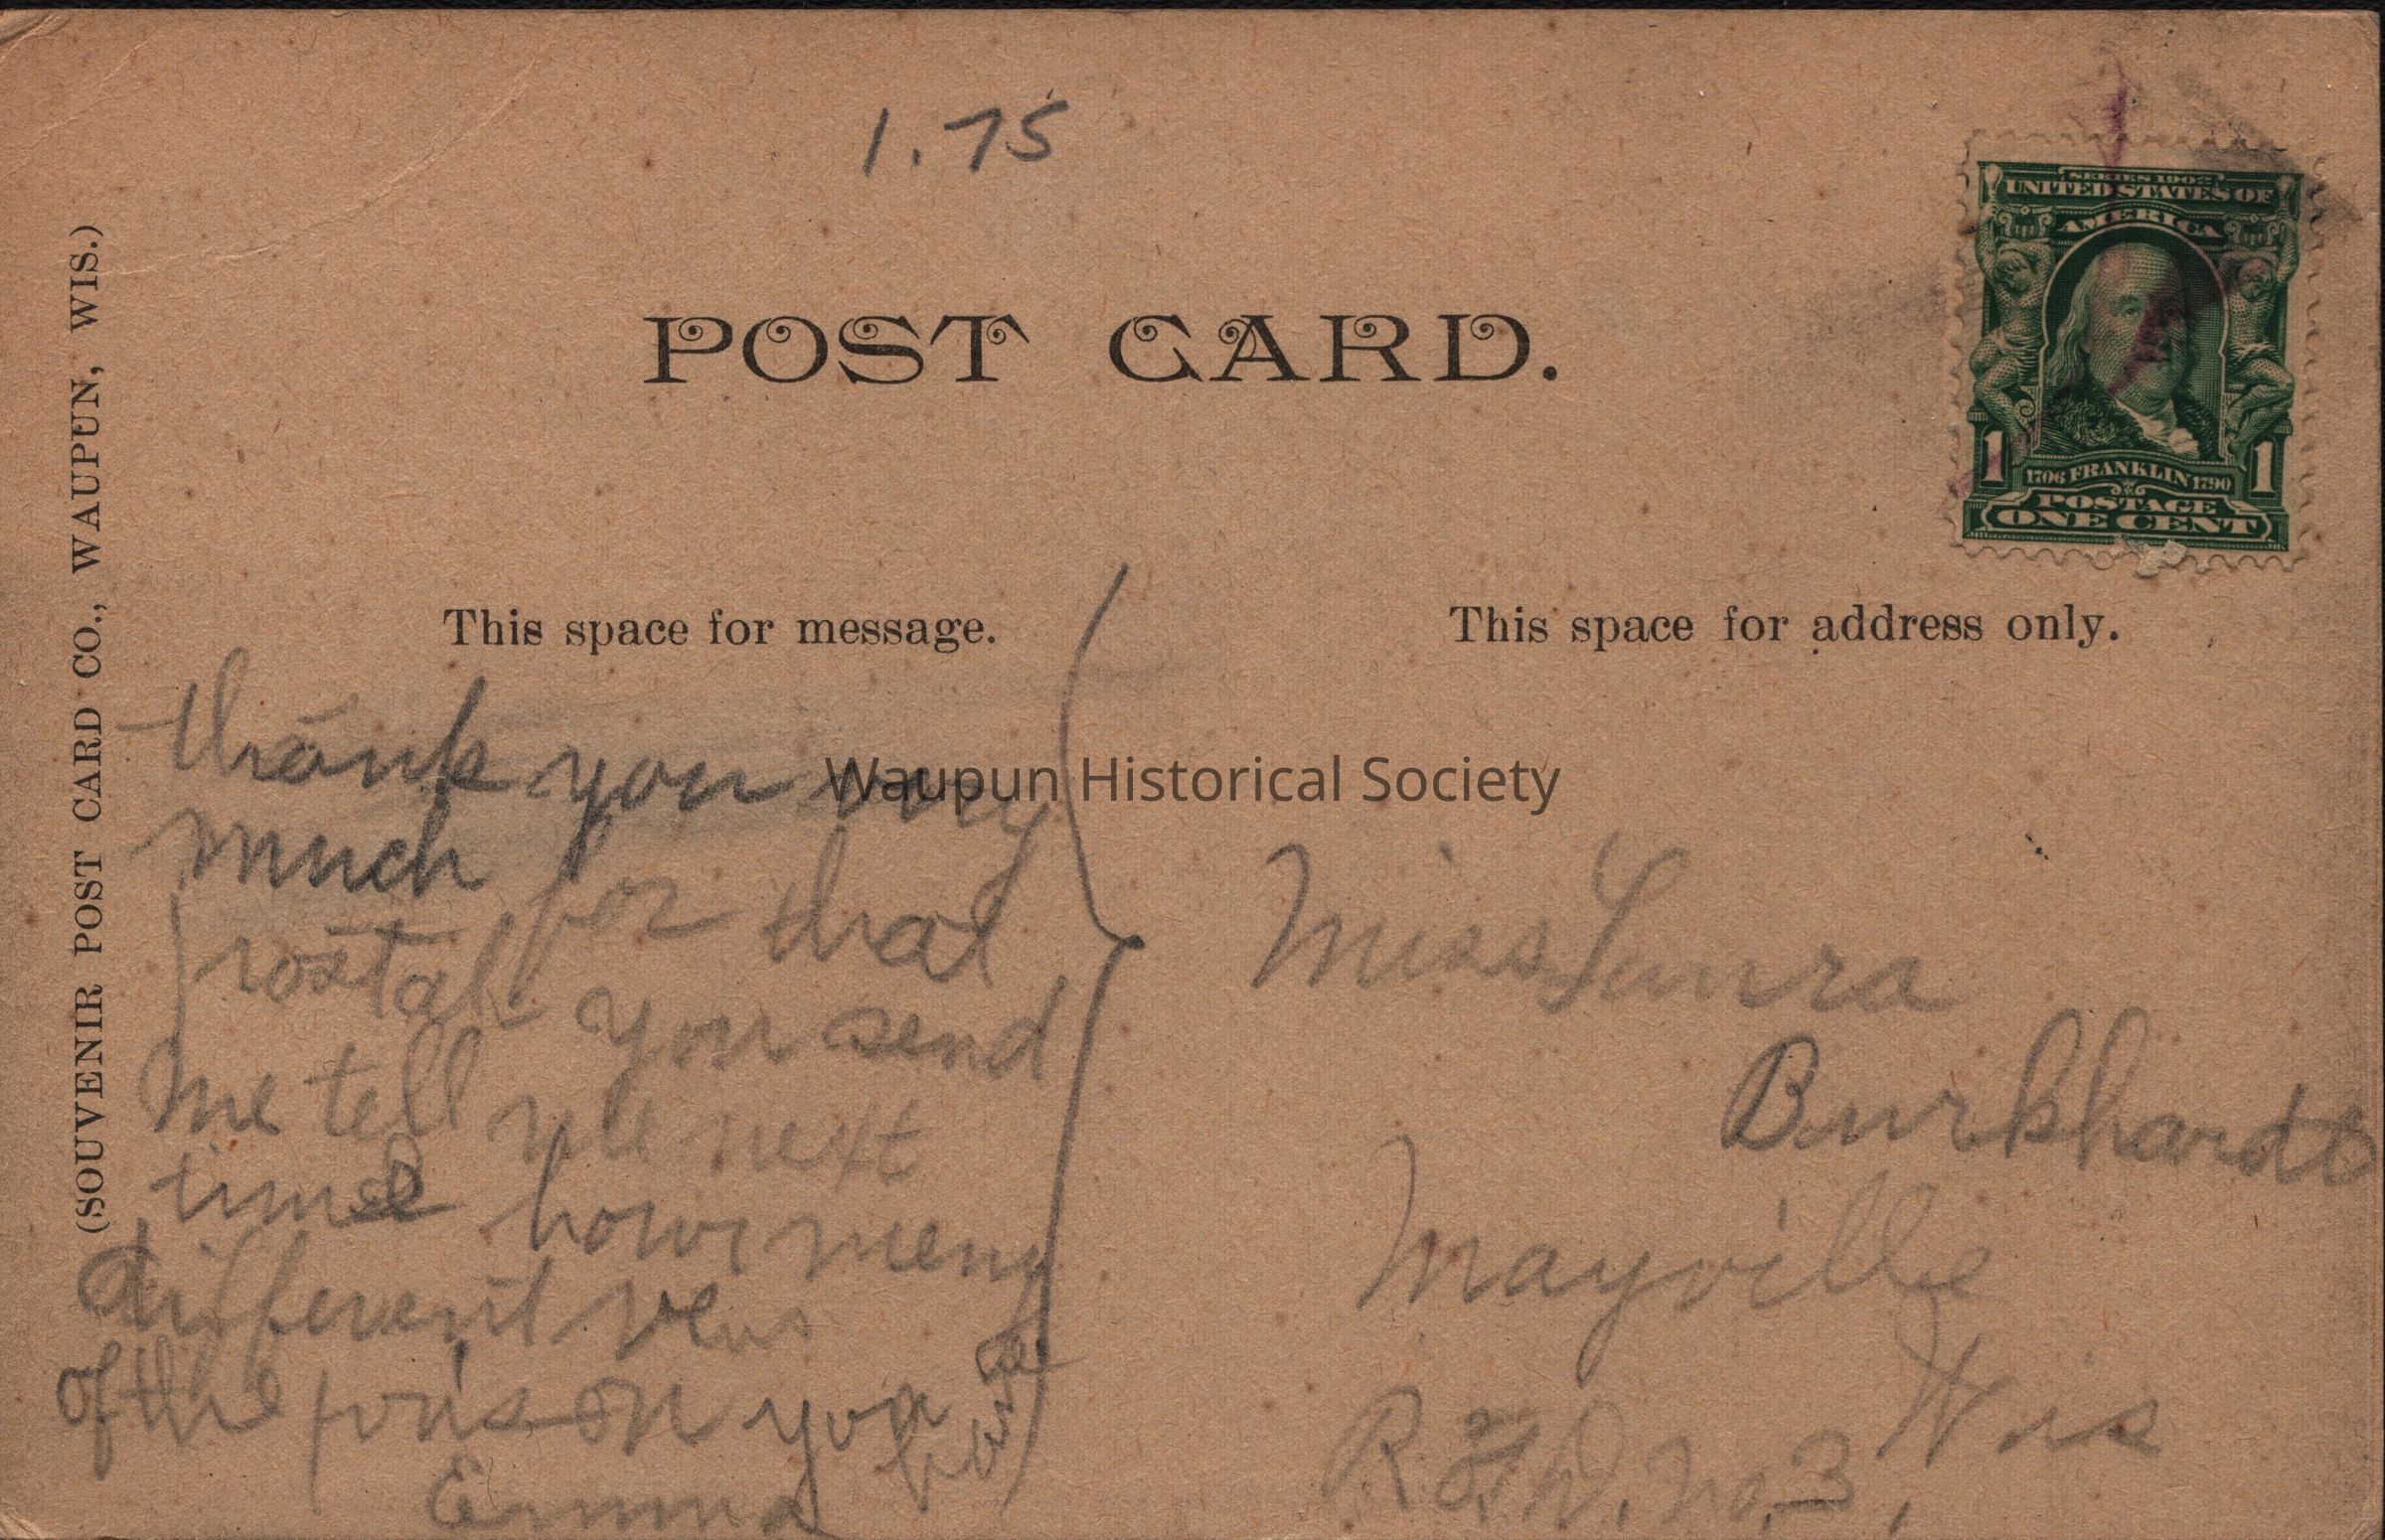 1.75
POST CARD.
SERIES 1902
UNITED STATES OF
AMERICA
1 1
1706 FRANKLIN 1790
POSTAGE
ONE CENT
(SOUVENIR POST CARD CO., WAUPUN, WIS.)
This space for message.
This space for address only.
Waupun Historical Society
thank you very
much for that
postal you send
me tell me next
time how meny
different vews
of the prison you
have
Emma
Miss Laura
Burkhardt
Mayville
Wis
R.F.D. No. 3.